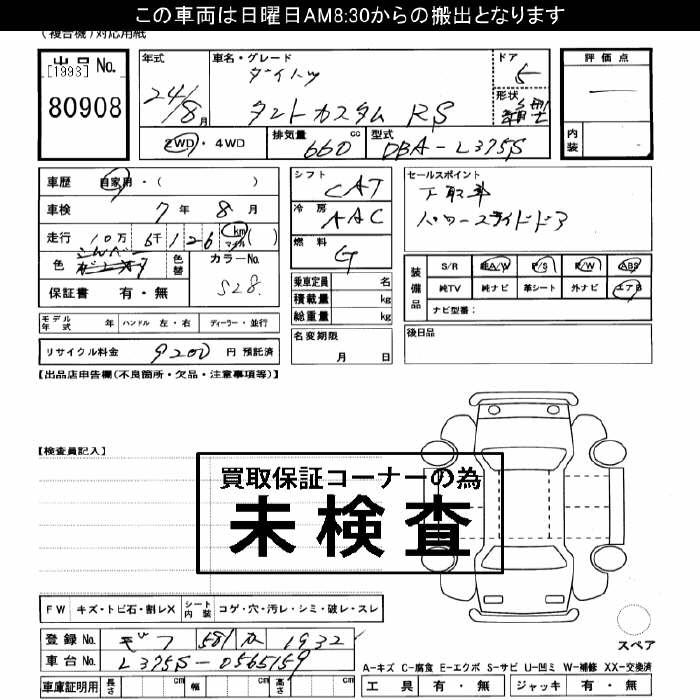 この車両は日曜日AM8:30からの搬出となります
(複合機)対応用紙
出品No.
[1993]
80908
年式
24/8月
車名・グレード
ダイハツ
タントカスタム RS
ドア
5
形状
2WD・4WD
排気量 660 cc
型式 DBA-L375S
評価点
内装
車歴 自家用・( )
車検 7年 8月
走行 10万 5千 1 2 6 km マイル ( )
色
シルバー
色替
カラーNo.
S28
保証書 有・無
シフト CAT
冷房 AAC
燃料 G
乗車定員 名
積載量 kg
総重量 kg
セールスポイント
下取車
パワースライドドア
装備品
S/R 純A/W P/S P/W ABS
純TV 純ナビ 革シート 外ナビ エアB
ナビ型番:
モデル年式 年 ハンドル 左・右 ディーラー・並行
リサイクル料金 9200 円 預託済
名変期限
月 日
後日品
【出品店申告欄(不良箇所・欠品・注意事項等)】
【検査員記入】
買取保証コーナーの為
未検査
FW キズ・トビ石・割レX シート内装 コゲ・穴・汚レ・シミ・破レ・スレ
登録No. 581 1932
車台No. L375S-0565159
車庫証明用 長さ cm 幅 cm 高さ cm
スペア
A-キズ C-腐食 E-エクボ S-サビ U-凹ミ W-補修 XX-交換済
工具 有・無 ジャッキ 有・無